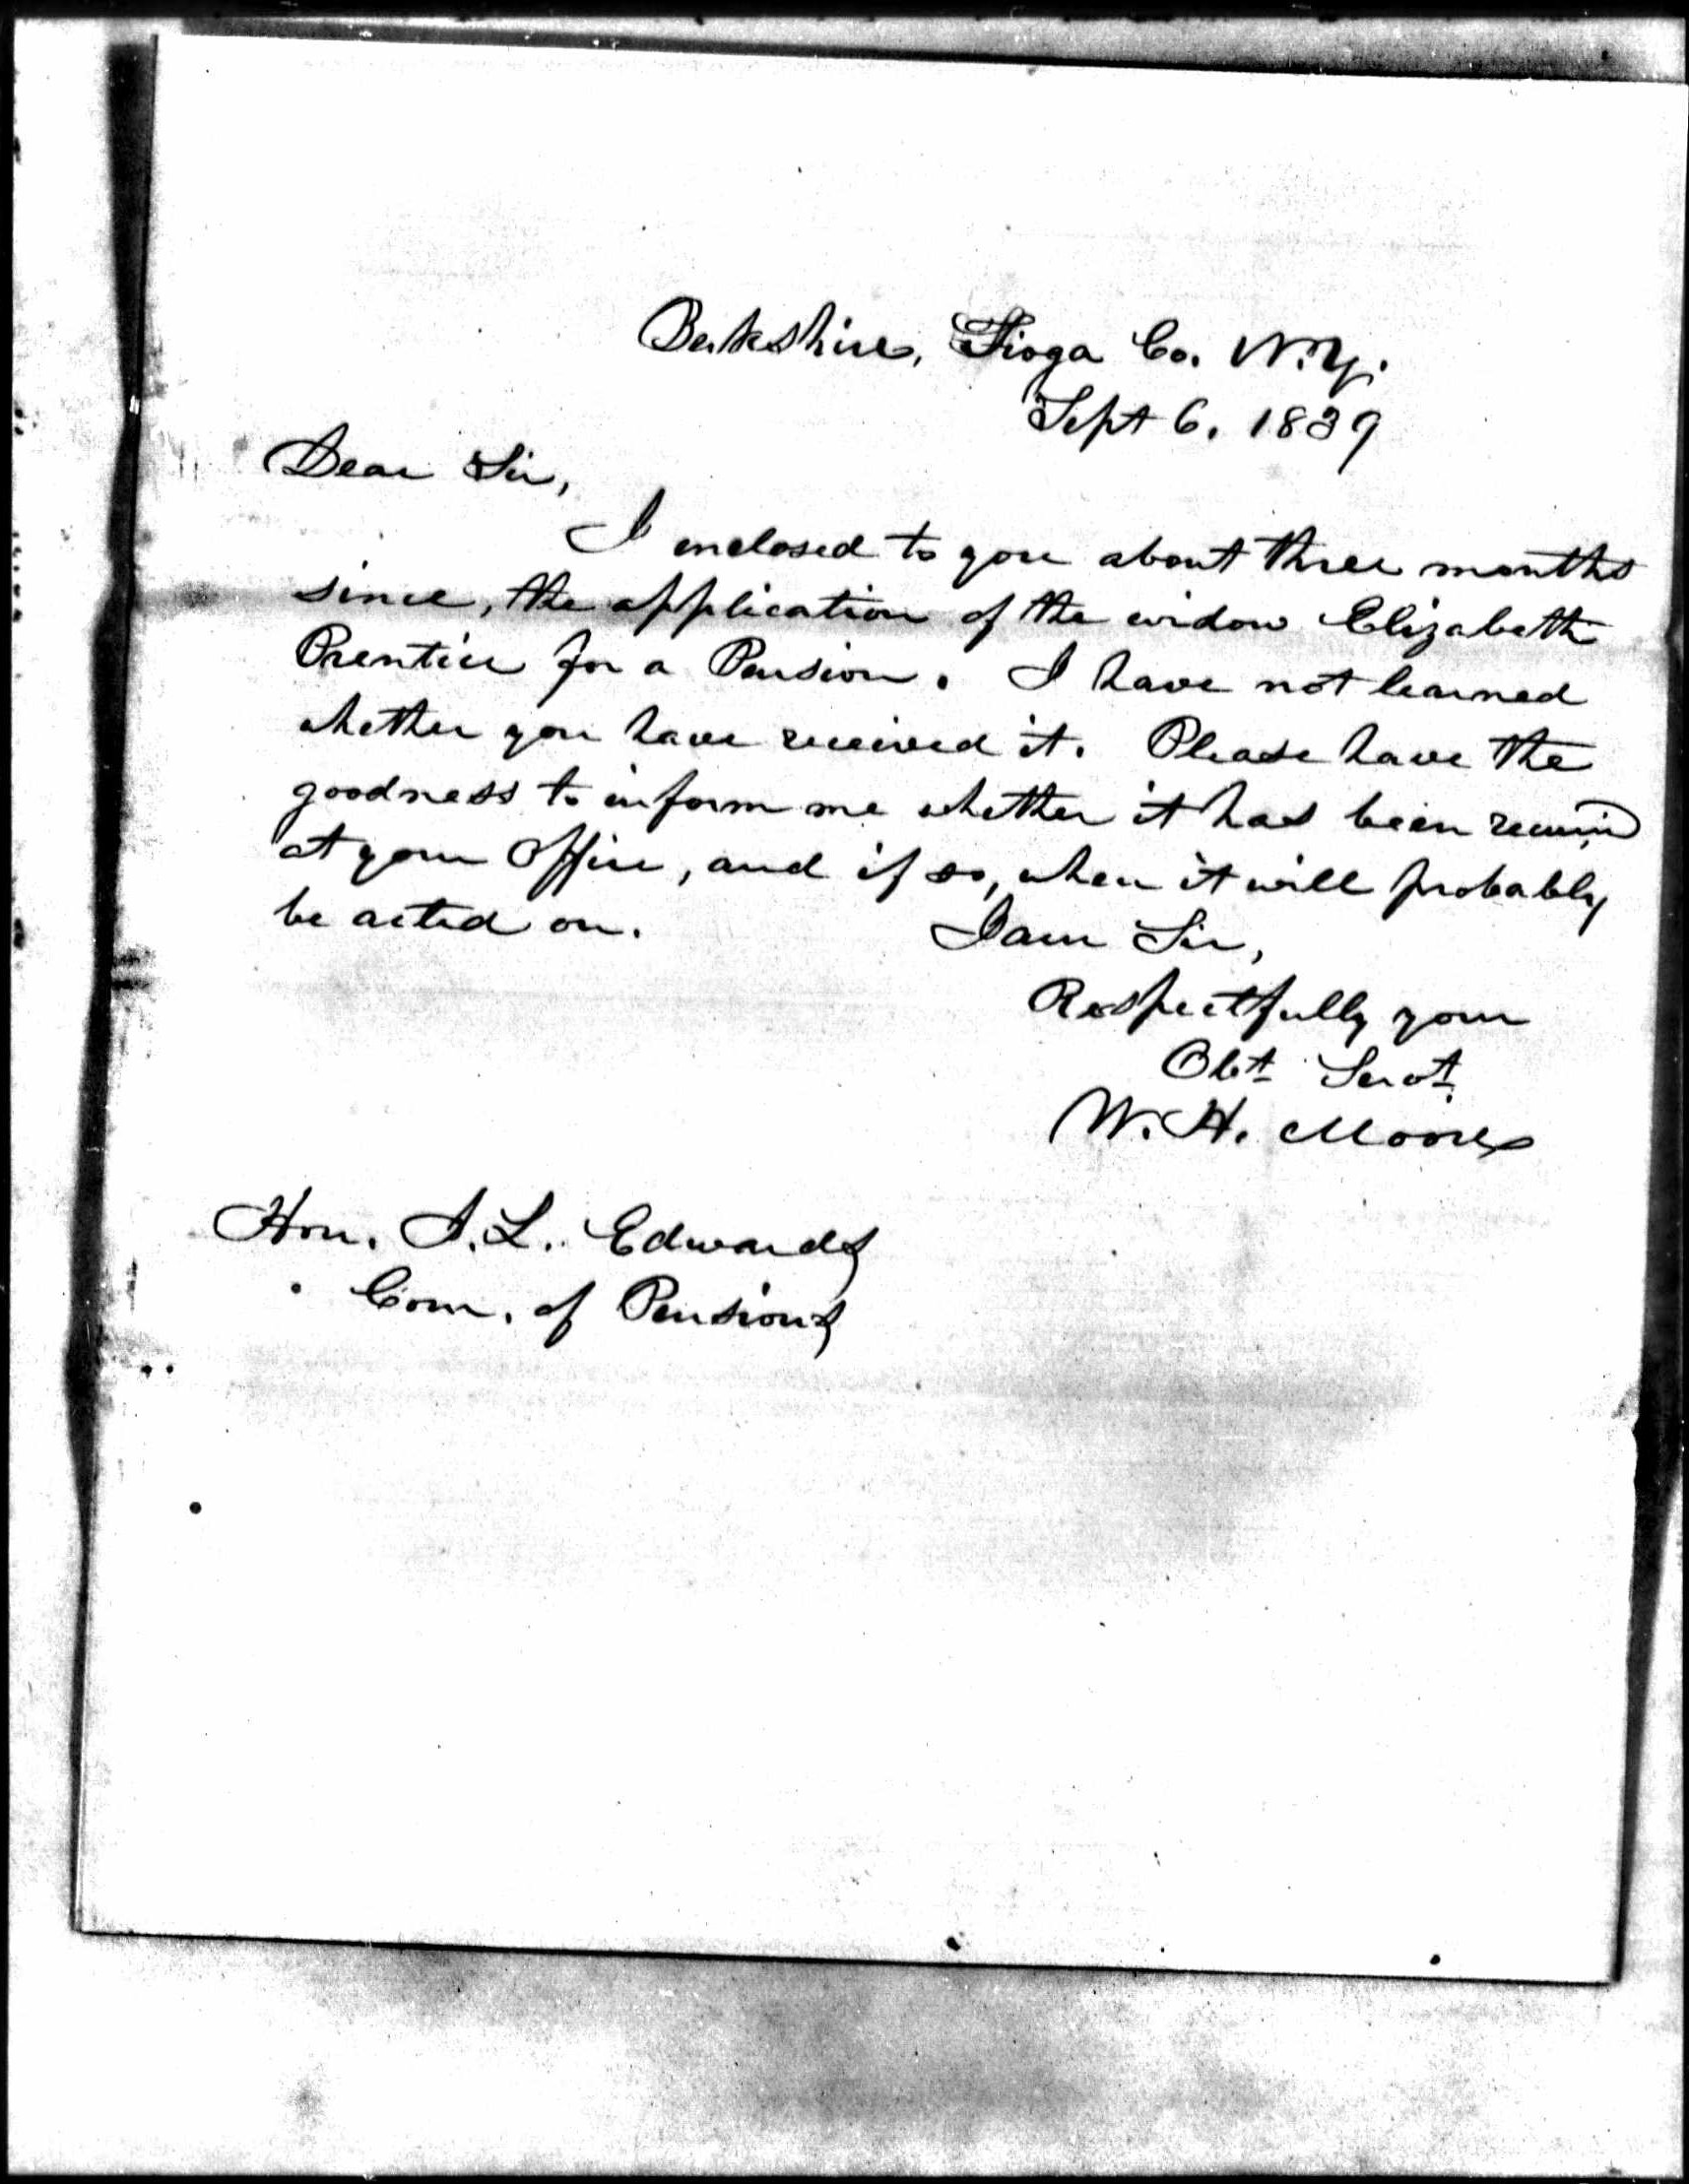 Berkshire, Tioga Co. N.Y.
Sept 6. 1839
Dear Sir,
I enclosed to you about three months
since, the application of the widow Elizabeth
Prentice for a Pension. I have not learned
whether you have received it. Please have the
goodness to inform me whether it has been received
at your Office, and if so, when it will probably
be acted on.
I am Sir,
Respectfully your
Obt Servt
W. H. Moore
Hon. J. L. Edwards
Com. of Pensions